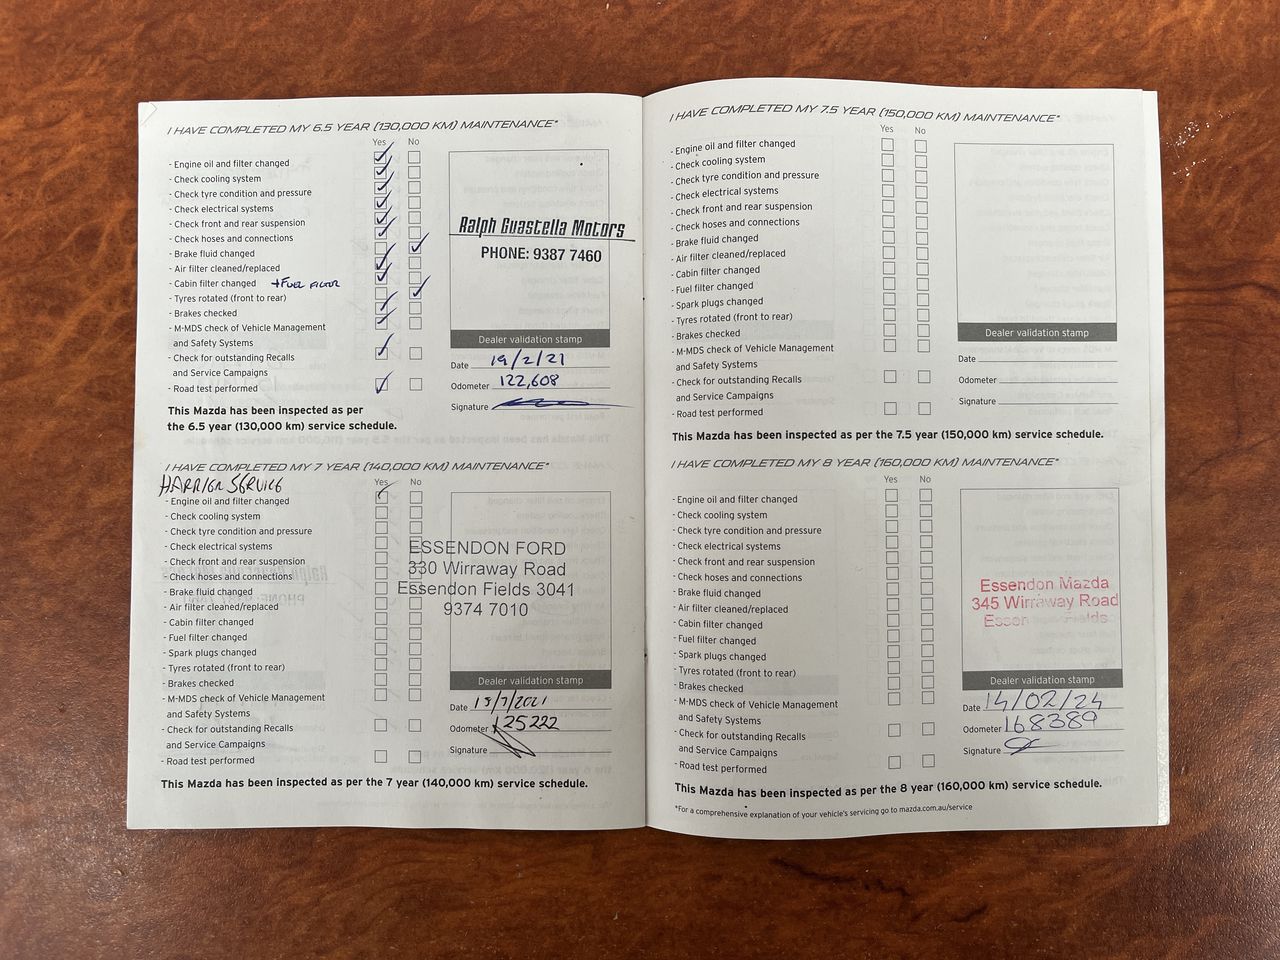 I HAVE COMPLETED MY 6.5 YEAR (130,000 KM) MAINTENANCE*
Yes No
- Engine oil and filter changed
- Check cooling system
- Check tyre condition and pressure
- Check electrical systems
- Check front and rear suspension
- Check hoses and connections
- Brake fluid changed
- Air filter cleaned/replaced
- Cabin filter changed + FUEL FILTER
- Tyres rotated (front to rear)
- Brakes checked
- M-MDS check of Vehicle Management
and Safety Systems
- Check for outstanding Recalls
and Service Campaigns
- Road test performed
Ralph Guastella Motors
PHONE: 9387 7460
Dealer validation stamp
Date 19/2/21
Odometer 122,608
Signature
This Mazda has been inspected as per
the 6.5 year (130,000 km) service schedule.
I HAVE COMPLETED MY 7 YEAR (140,000 KM) MAINTENANCE*
SERVICE
Yes No
- Engine oil and filter changed
- Check cooling system
- Check tyre condition and pressure
- Check electrical systems
- Check front and rear suspension
- Check hoses and connections
- Brake fluid changed
- Air filter cleaned/replaced
- Cabin filter changed
- Fuel filter changed
- Spark plugs changed
- Tyres rotated (front to rear)
- Brakes checked
- M-MDS check of Vehicle Management
and Safety Systems
- Check for outstanding Recalls
and Service Campaigns
- Road test performed
ESSENDON FORD
330 Wirraway Road
Essendon Fields 3041
9374 7010
Dealer validation stamp
Date 15/7/2021
Odometer 125222
Signature
This Mazda has been inspected as per the 7 year (140,000 km) service schedule.
I HAVE COMPLETED MY 7.5 YEAR (150,000 KM) MAINTENANCE*
Yes No
- Engine oil and filter changed
- Check cooling system
- Check tyre condition and pressure
- Check electrical systems
- Check front and rear suspension
- Check hoses and connections
- Brake fluid changed
- Air filter cleaned/replaced
- Cabin filter changed
- Fuel filter changed
- Spark plugs changed
- Tyres rotated (front to rear)
- Brakes checked
- M-MDS check of Vehicle Management
and Safety Systems
- Check for outstanding Recalls
and Service Campaigns
- Road test performed
Dealer validation stamp
Date
Odometer
Signature
This Mazda has been inspected as per the 7.5 year (150,000 km) service schedule.
I HAVE COMPLETED MY 8 YEAR (160,000 KM) MAINTENANCE*
Yes No
- Engine oil and filter changed
- Check cooling system
- Check tyre condition and pressure
- Check electrical systems
- Check front and rear suspension
- Check hoses and connections
- Brake fluid changed
- Air filter cleaned/replaced
- Cabin filter changed
- Fuel filter changed
- Spark plugs changed
- Tyres rotated (front to rear)
- Brakes checked
- M-MDS check of Vehicle Management
and Safety Systems
- Check for outstanding Recalls
and Service Campaigns
- Road test performed
Essendon Mazda
345 Wirraway Road
Essen Fields
Dealer validation stamp
Date 14/02/24
Odometer 168389
Signature
This Mazda has been inspected as per the 8 year (160,000 km) service schedule.
*For a comprehensive explanation of your vehicle's servicing go to mazda.com.au/service